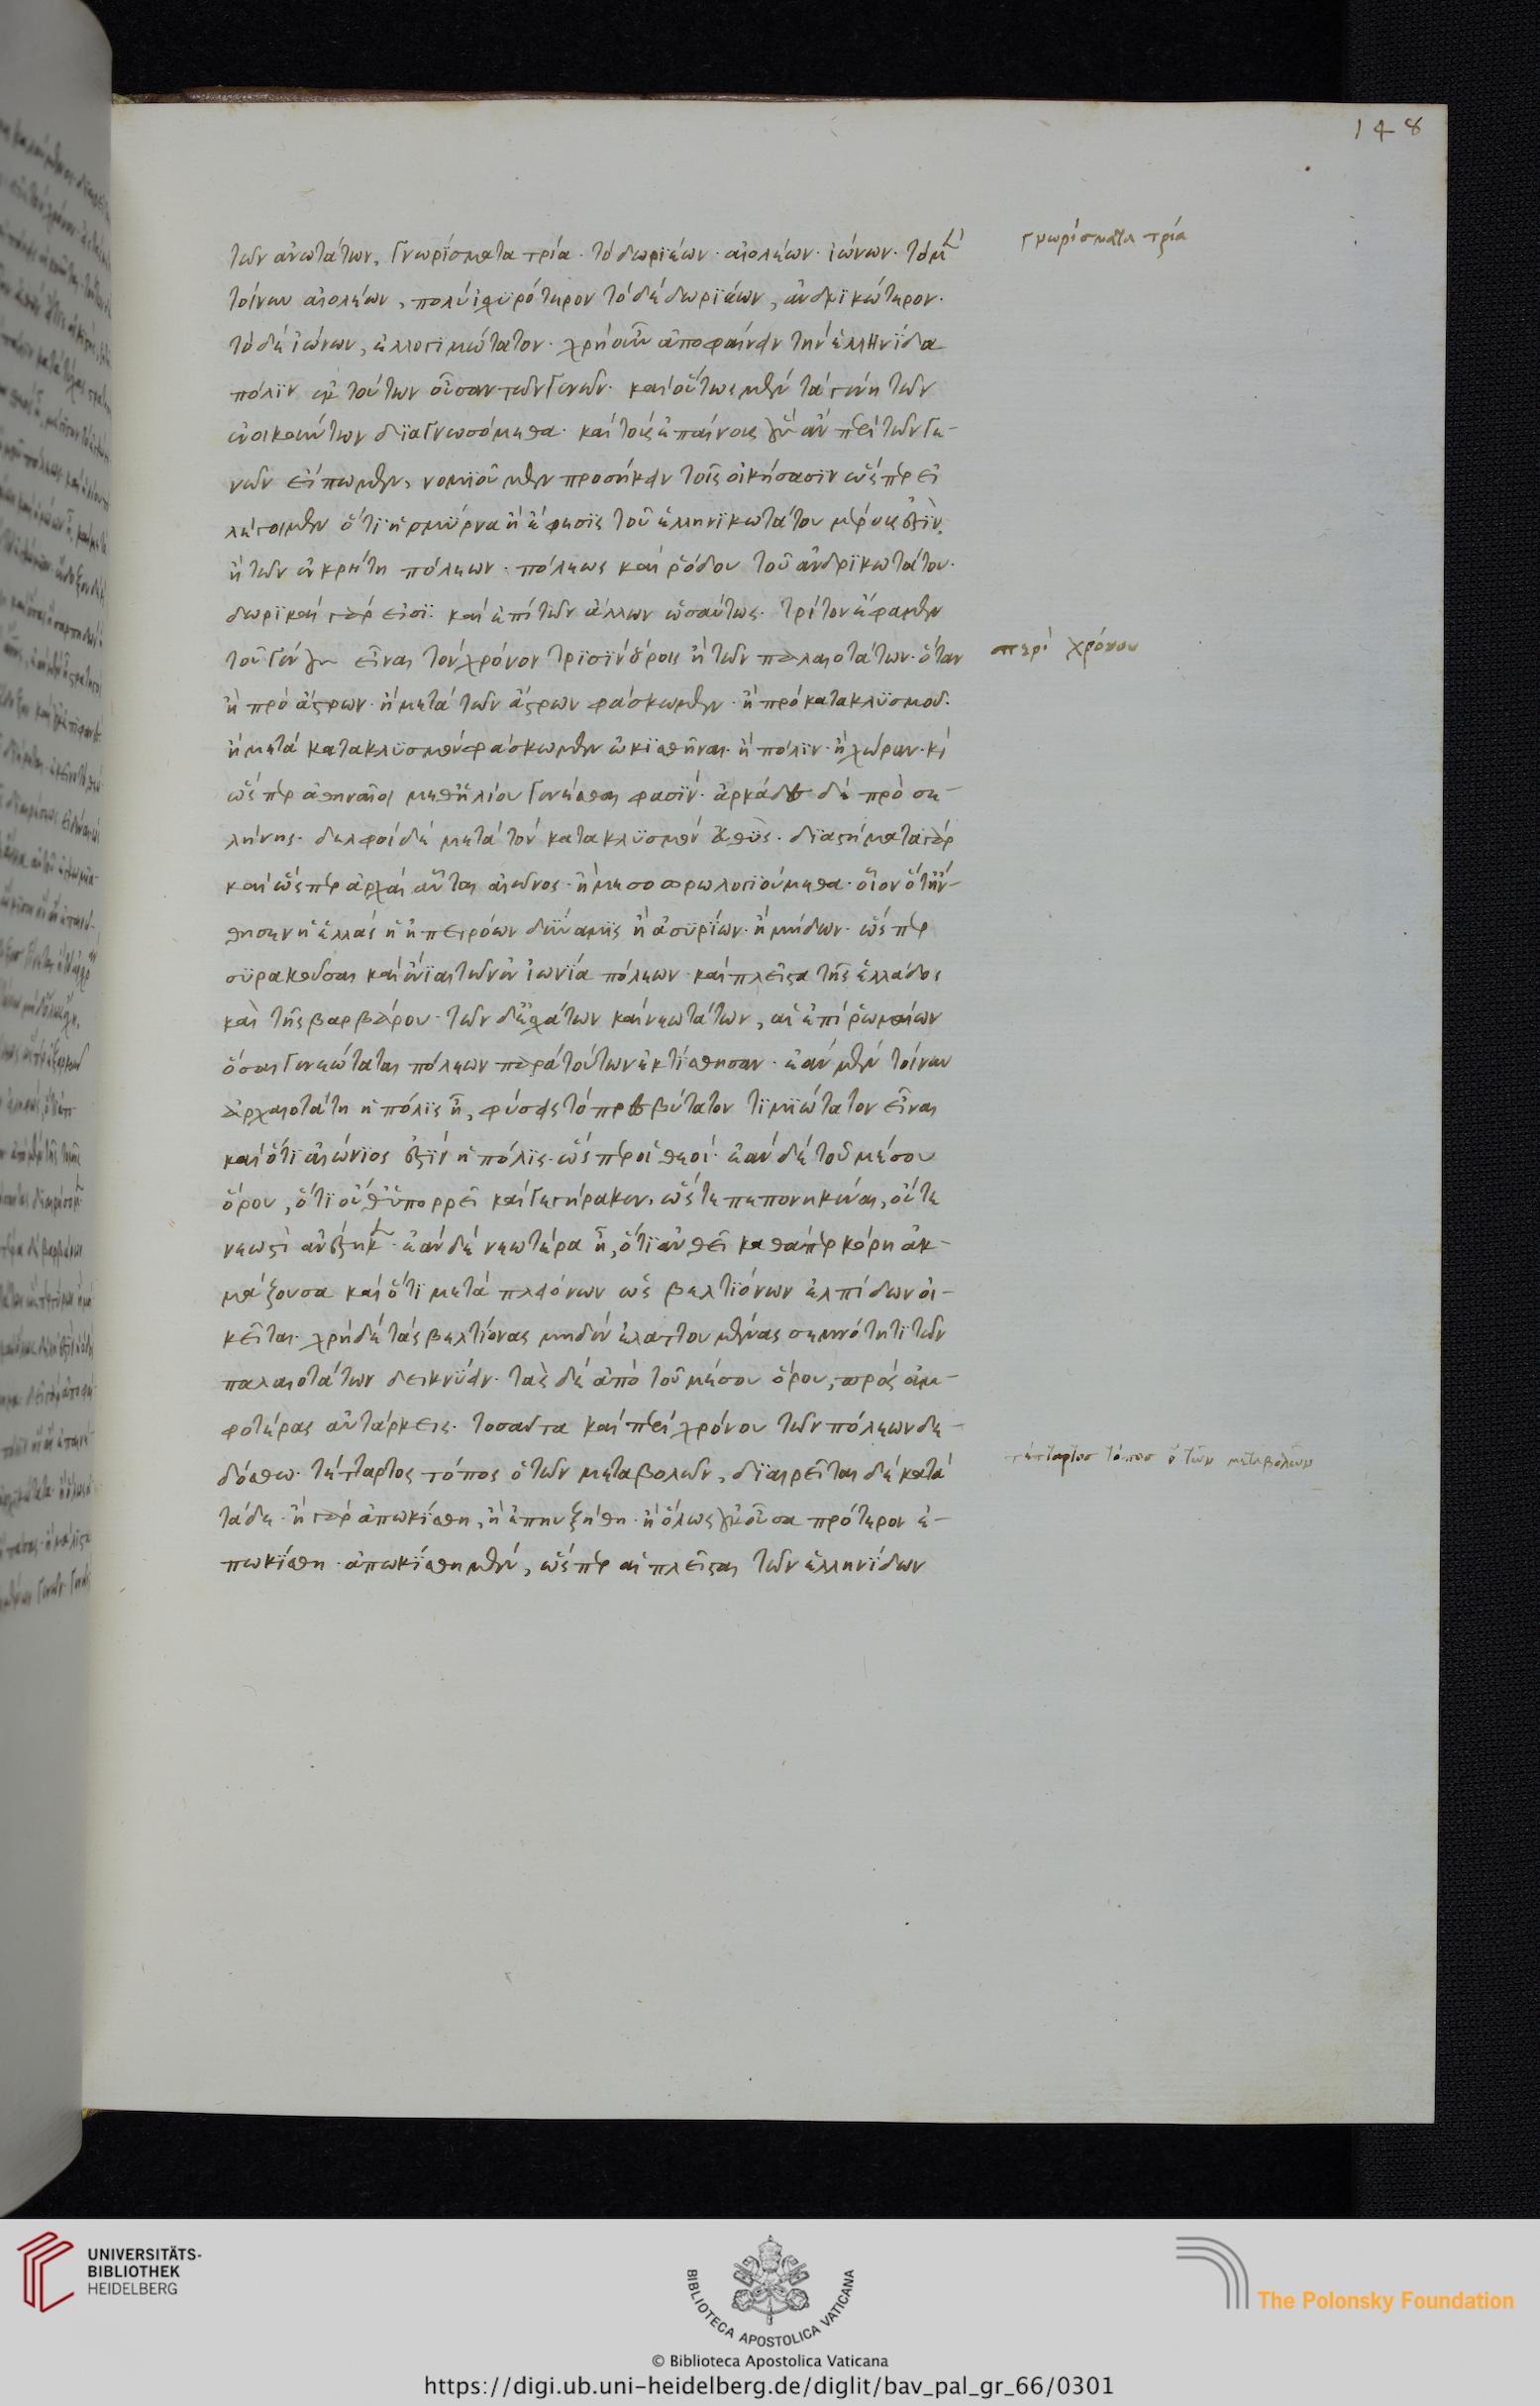 148
τῶν ἀνωτάτων, γνωρίσματα τρία· τὸ δωριέων· αἰολέων· ἰώνων· τὸ μὲν
γνωρίσματα τρία
τοίνυν αἰολέων, πολὺ ἰσχυρότερον τὸ δὲ δωριέων, ἀνδρικώτερον·
τὸ δὲ ἰώνων, ἐλλογιμώτατον· χρὴ οὖν ἀποφαίνειν τὴν ἑλληνίδα
πόλιν ἐκ τούτων οὖσαν τῶν γενῶν· καὶ οὕτως μὲν τὰ γένη τῶν
ἐνοικούντων διαγνωσόμεθα· καὶ τοὺς ἐπαίνους οὓς ἂν περὶ τῶν γε-
νῶν εἴπωμεν, νομιοῦμεν προσήκειν τοῖς οἰκήσασιν ὥσπερ εἰ
λέγοιμεν ὅτι ἡ σμύρνα ἢ ἔφεσις τοῦ ἑλληνικωτάτου μέρους ἐστὶν,
ἢ τῶν ἐν κρήτη πόλεων· πόλεως καὶ ῥόδου τοῦ ἀνδρικωτάτου·
δωρικαὶ γάρ εἰσι· καὶ ἐπὶ τῶν ἄλλων ὡσαύτως· τρίτον ἔφαμεν
τοῦ γένους εἶναι τὸν χρόνον τρισὶν ὅροις ἢ τῶν παλαιοτάτων· ὅταν
περὶ χρόνου
ἢ πρὸ ἄστρων· ἢ μετὰ τῶν ἄστρων φάσκωμεν· ἢ πρὸ κατακλυσμοῦ·
ἢ μετὰ κατακλυσμὸν φάσκωμεν ᾠκίσθηναι· ἢ πόλιν· ἢ χώραν·
ὥσπερ ἀθηναῖοι μεθ' ἡλίου γενέσθαι φασίν· ἀρκάδες δὲ πρὸ σε-
λήνης· δελφοὶ δὲ μετὰ τὸν κατακλυσμὸν εὐθὺς· διαστήματα γὰρ
καὶ ὥσπερ ἀρχαὶ αὗται αἰῶνος· ἢ μέσο
οἷον ὅτ' ἤν-
θησεν ἡ ἑλλὰς ἢ ἡ περσῶν δύναμις ἢ ἀσυρίων· ἢ μήδων· ὥσπερ
συρακοῦσαι καὶ ἔνιαι τῶν ἐν ἰωνία πόλεων· καὶ πλεῖστα τῆς ἑλλάδος
καὶ τῆς βαρβάρου· τῶν δ' ἐσχάτων καὶ νεωτάτων, αἱ ἐπὶ ῥωμαίων
ὅσαι γὰρ νεώταται πόλεων παρὰ τούτων ἐκτίσθησαν· ἐὰν μὲν τοίνυν
ἀρχαιοτάτη ἡ πόλις ἦ, φύσεις τὸ πρεσβύτατον τιμιώτατον εἶναι
καὶ ὅτι αἰώνιος ἐστὶν ἡ πόλις· ὥσπερ οἱ θεοί· ἐὰν δὲ τοῦ μέσου
ὅρου, ὅτι οὔθ' ὑπορρεῖ καὶ γεγήρακεν, ὥστε πεπονηκέναι, οὔτε
νεωστὶ ἀνέστηκε· ἐὰν δὲ νεωτέρα ἦ, ὅτι ἀνθεῖ καθάπερ κόρη ἀκ-
μάζουσα καὶ ὅτι μετὰ πλειόνων ὡς βελτιόνων ἐλπίδων οἰ-
κεῖται· χρὴ δὲ τὰς βελτίονας μηδὲν ἐλαττουμένας σεμνότητι τῶν
παλαιοτάτων δεικνύειν· τὰς δὲ ἀπὸ τοῦ μέσου ὅρου, πρὸς ἀμ-
φοτέρας αὐτάρκεις· τοσαῦτα καὶ περὶ χρόνου τῶν πόλεων δε-
δόσθω· τέταρτος τόπος ὁ τῶν μεταβολῶν, διαιρεῖται δὲ κατὰ
τέταρτος τόπος ὁ τῶν μεταβολῶν
τάδε· ἢ γὰρ ἀπωκίσθη, ἢ ἐπηυξήθη· ἢ ὅλως οὐκ οὖσα πρότερον ἐ-
πωκίσθη· ἀπωκίσθη μὲν, ὥσπερ αἱ πλεῖσται τῶν ἑλληνίδων
UNIVERSITÄTS-
BIBLIOTHEK
HEIDELBERG
BIBLIOTECA APOSTOLICA VATICANA
The Polonsky Foundation
© Biblioteca Apostolica Vaticana
https://digi.ub.uni-heidelberg.de/diglit/bav_pal_gr_66/0301